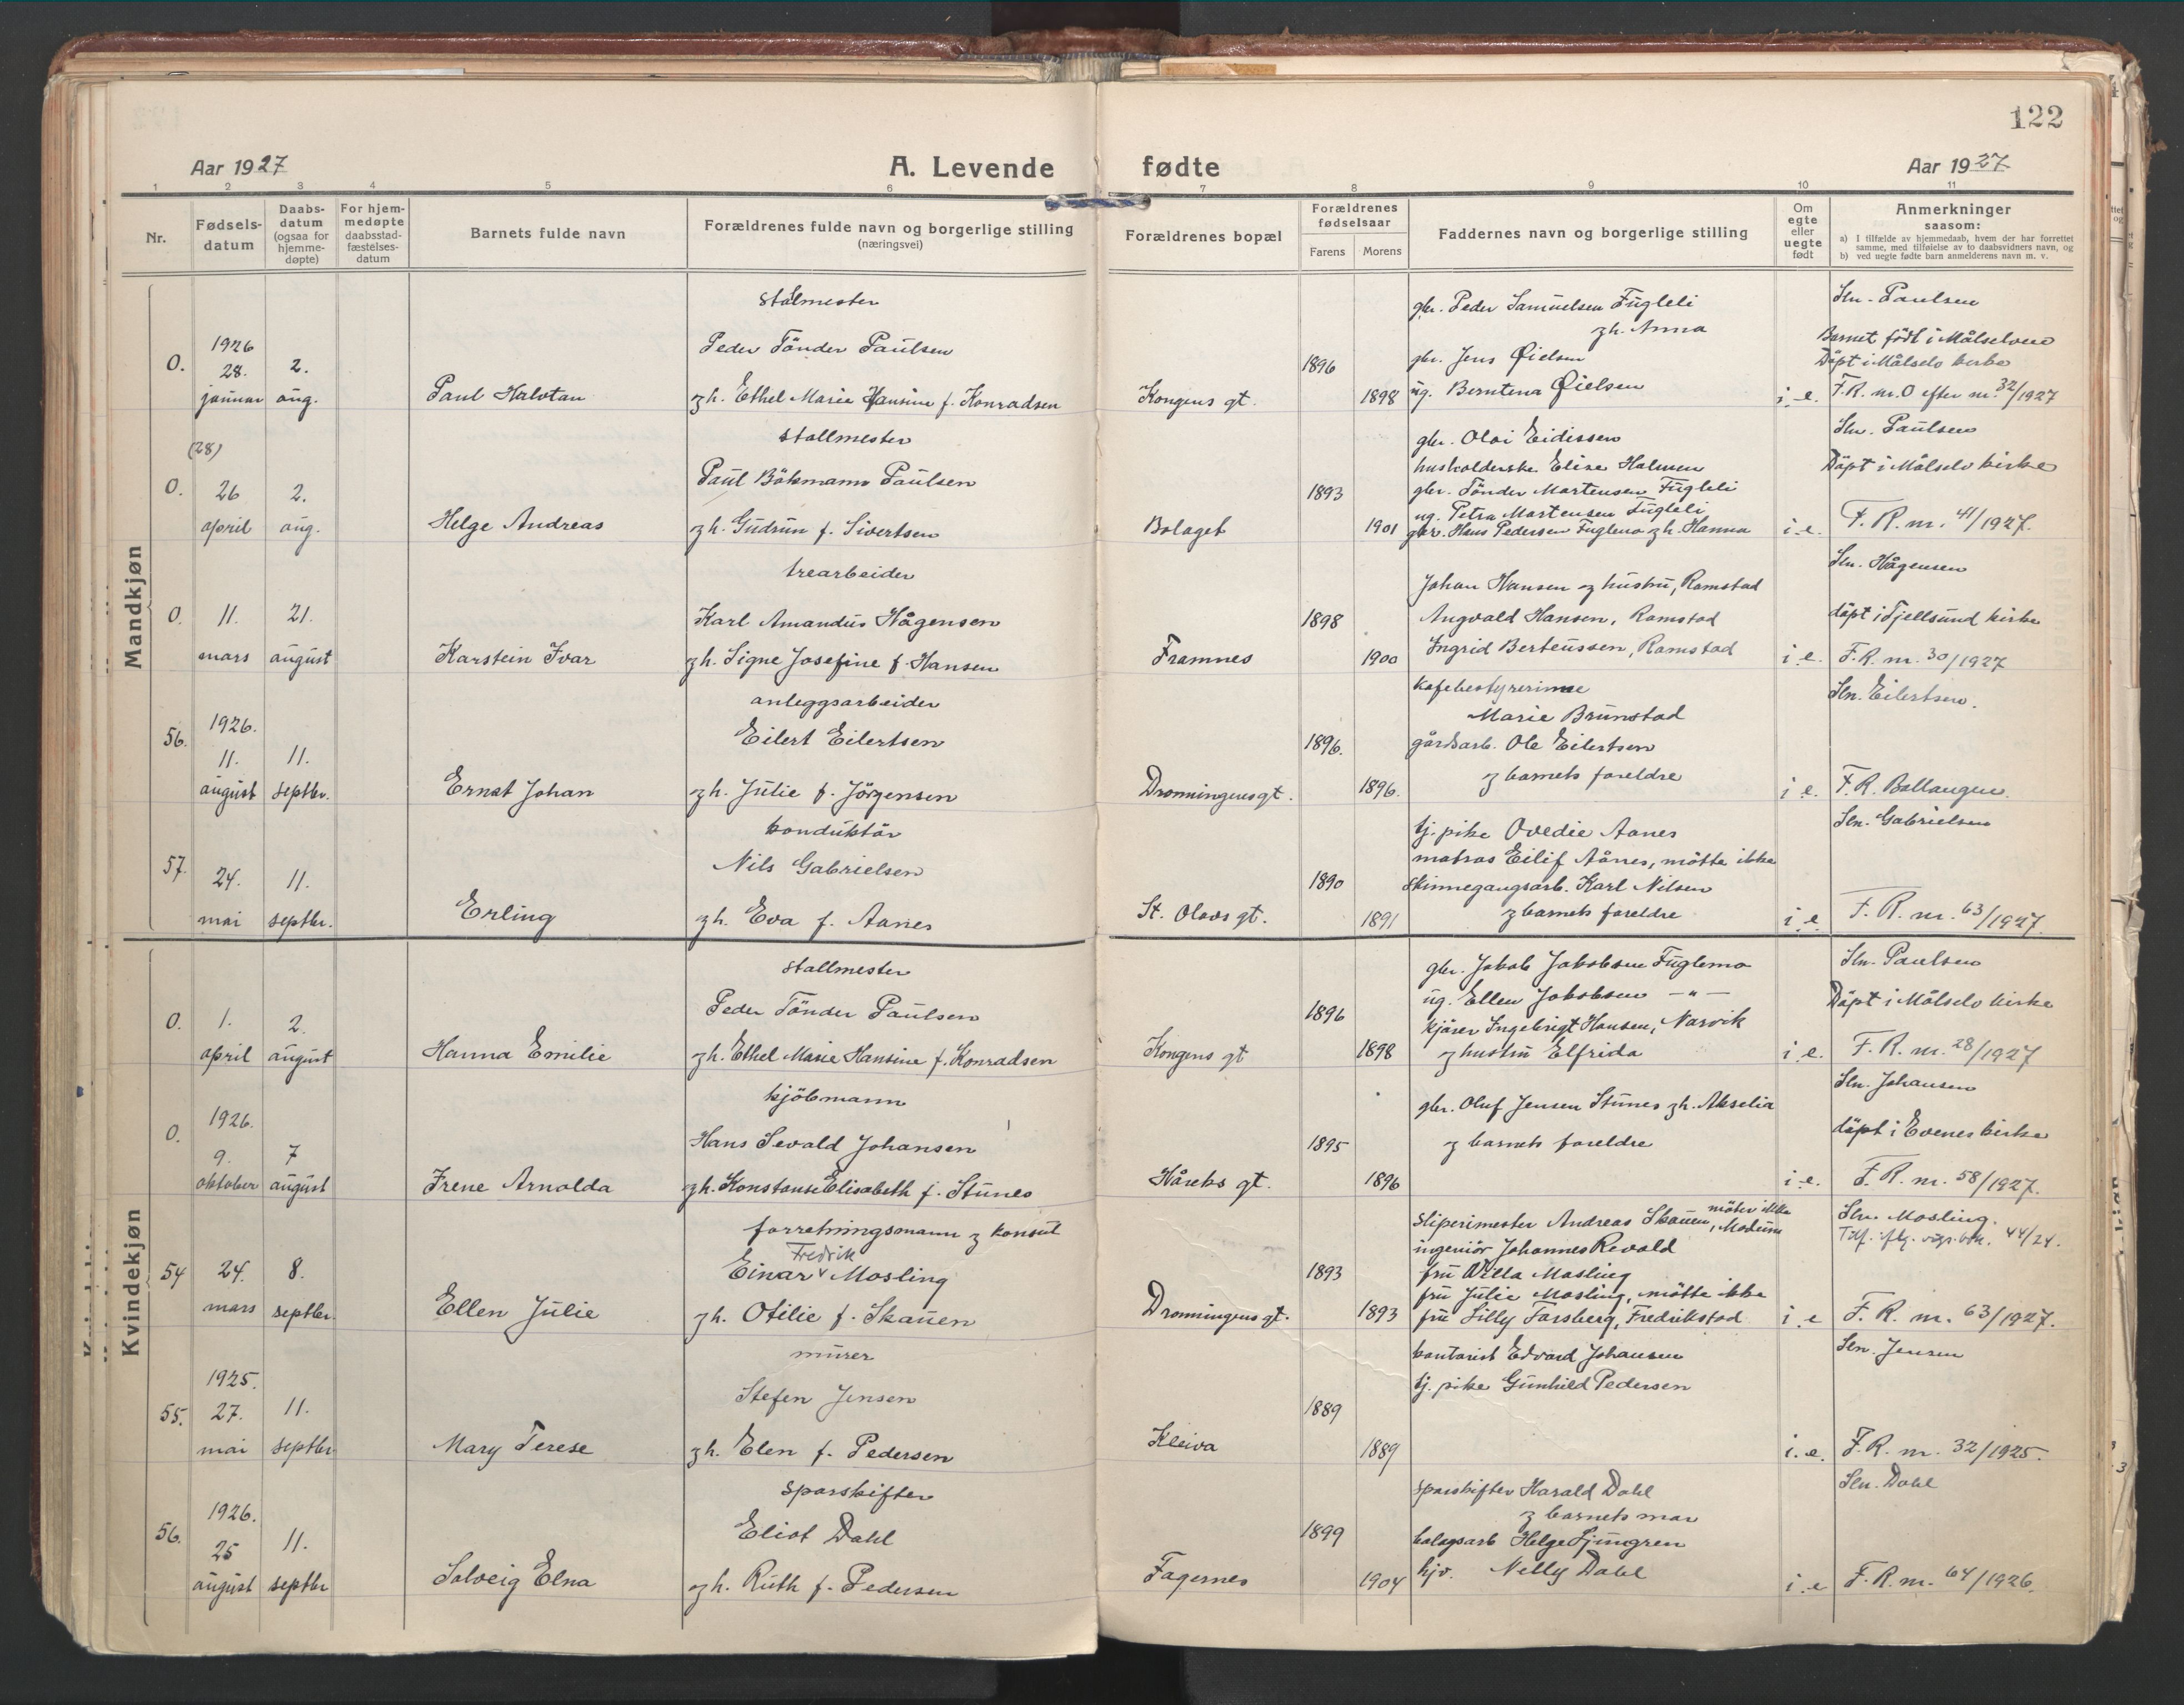 122
Aar 1927
A. Levende
fødte
Aar 1927
1 2 3 4 5 6 7 8 9 10 11
Nr.
Fødsels-
datum
Daabs-
datum
(ogsaa for
hjemme-
døpte)
For hjem-
medøpte
daabsstad-
fæstelses-
datum
Barnets fulde navn
Forældrenes fulde navn og borgerlige stilling
(næringsvei)
Forældrenes bopæl
Forældrenes
fødselsaar
Farens
Morens
Faddernes navn og borgerlige stilling
Om
egte
eller
uegte
født
Anmerkninger
saasom:
a) I tilfælde av hjemmedaab, hvem der har forrettet
samme, med tilføielse av to daabsvidners navn, og
b) ved uegte fødte barn anmelderens navn m. v.
Mandkjøn
0.
1926
28.
januar
2.
aug.
Paul Halvtan
stalmester
Peder Tönder Paulsen
g h. Ethel Marie Hansine f. Konradsen
Kongens gt.
1896
1898
gbr. Peder Samuelsen Fugleli
g h. Anna
gbr. Jens Øielsen
ug. Berntena Øielsen
i. e.
Sln. Paulsen
Barnet födt i Målselven
Döpt i Målselv kirke
F.R. nr. 0 efter nr. 32/1927
(28)
0.
26
april
2.
aug.
Helge Andreas
stallmester
Paul Bökmann Paulsen
g h. Gudrun f. Sivertsen
Bolaget
1893
1901
gbr. Olai Eidissen
husholderske Elise Halmen
gbr. Tönder Martensen Fugleli
ug. Petra Martensen Fugleli
gbr. Hans Pedersen Fuglemo g h. Hanna
i. e.
Sln. Paulsen
Döpt i Målselv kirke
F. R. nr. 41/1927.
0.
11.
mars
21.
august
Karstein Ivar
trearbeider
Karl Amandus Hågensen
g h. Signe Josefine f. Hansen
Framnes
1898
1900
Johan Hansen og hustru, Ramstad
Angvald Hansen, Ramstad
Ingrid Berteussen, Ramstad
i. e.
Sln. Hågensen
döpt i Tjellsund kirke
F.R. nr. 30/1927
56.
1926.
11.
august
11.
septbr.
Ernst Johan
anleggsarbeider
Eilert Eilertsen
g h. Julie f. Jörgensen
Dronningensgt.
1896.
1896.
kafebestyrerinne
Marie Brunstad
gårdsarb. Ole Eilertsen
g barnets foreldre
i e.
Sln. Eilertsen.
F.R. Ballangen.
57.
24.
mai
11.
septbr.
Erling
konduktör
Nils Gabrielsen
g h. Eva f. Aanes
St. Olavs gt.
1890
1891
tj. pike Ovedie Aanes
matros Eilif Aånes, mötte ikke
skinnegangsarb. Karl Nilsen
g barnets foreldre
i e
Sln. Gabrielsen
F. R. nr. 63/1927.
Kvindekjøn
0.
1.
april
2.
august
Hanna Emilie
stallmester
Peder Tönder Paulsen
g h. Ethel Marie Hansine f. Konradsen
Kongens gt
1896
1898
gbr. Jakob Jakobsen Fuglemo
ug. Ellen Jakobsen — " —
kjörer Ingebrigt Hansen, Narvik
g hustru Elfrida
i e.
Sln. Paulsen
Döpt i Målselv kirke
F. R. nr. 28/1927
0.
1926.
9.
oktober
7
august
Irene Arnolda
kjöbmann
Hans Sevald Johansen
g h. Konstanse Elisabeth f. Stunes
Håreks gt.
1895
1896
gbr. Oluf Jensen Stunes g h. Akselia
g barnets foreldre
i. e.
Sln. Johansen
döpt i Evenes kirke
F. R. nr. 58/1927.
54
24.
mars
8.
septbr.
Ellen Julie
forretningsmann g konsul
Fredrik
Einar v Mosling
g h. Otilie f. Skauen
Dronningensgt.
1893
1893
möter ikke
sliperimester Andreas Skauen, Modum
ingeniör Johannes Revold
fru Villa Mosling
fru Julie Mosling, mötte ikke
fru Lilly Forsberg, Fredrikstad
i e
Sln. Mosling.
44/24.
F. R. nr. 63/1927.
55.
1925.
27.
mai
11.
septbr
Mary Terese
murer
Stefen Jensen
g h. Elen f. Pedersen
Kleiva
1889
1889
kontorist Edvard Johansen
tj. pike Gunhild Pedersen
i. e.
Sln. Jensen
F. R. nr. 32/1925.
56.
1926.
25
august
11.
septbr
Solveig Elna
sporskifter
Eliot Dahl
g h. Ruth f. Pedersen
Fagernes
1899
1904
sporskifter Harald Dahl
g barnets mor
bolagsarb Helge Ljungren
hjv. Nelly Dahl
i e
Sln. Dahl
F. R. nr. 64/1926.